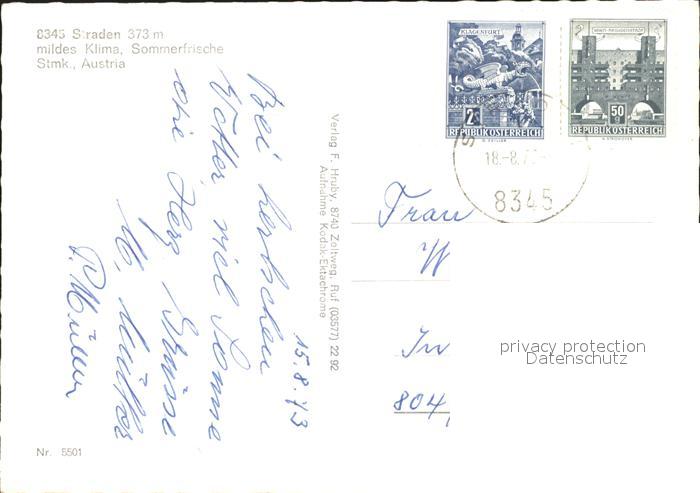 8345 Straden 373 m
mildes Klima, Sommerfrische
Stmk., Austria
KLAGENFURT
2 S
REPUBLIK ÖSTERREICH
50 g
REPUBLIK ÖSTERREICH
18.-8.7
8345
Verlag F. Hruby, 8740 Zeltweg, Ruf (03577) 22 92
Aufnahme Kodak-Ektachrome
15.8.73
Bei herrlichem
Wetter, viel Sonne
die Herz. Grüsse
P. Müller
Frau
W
In
804,
privacy protection
Datenschutz
Nr. 5501